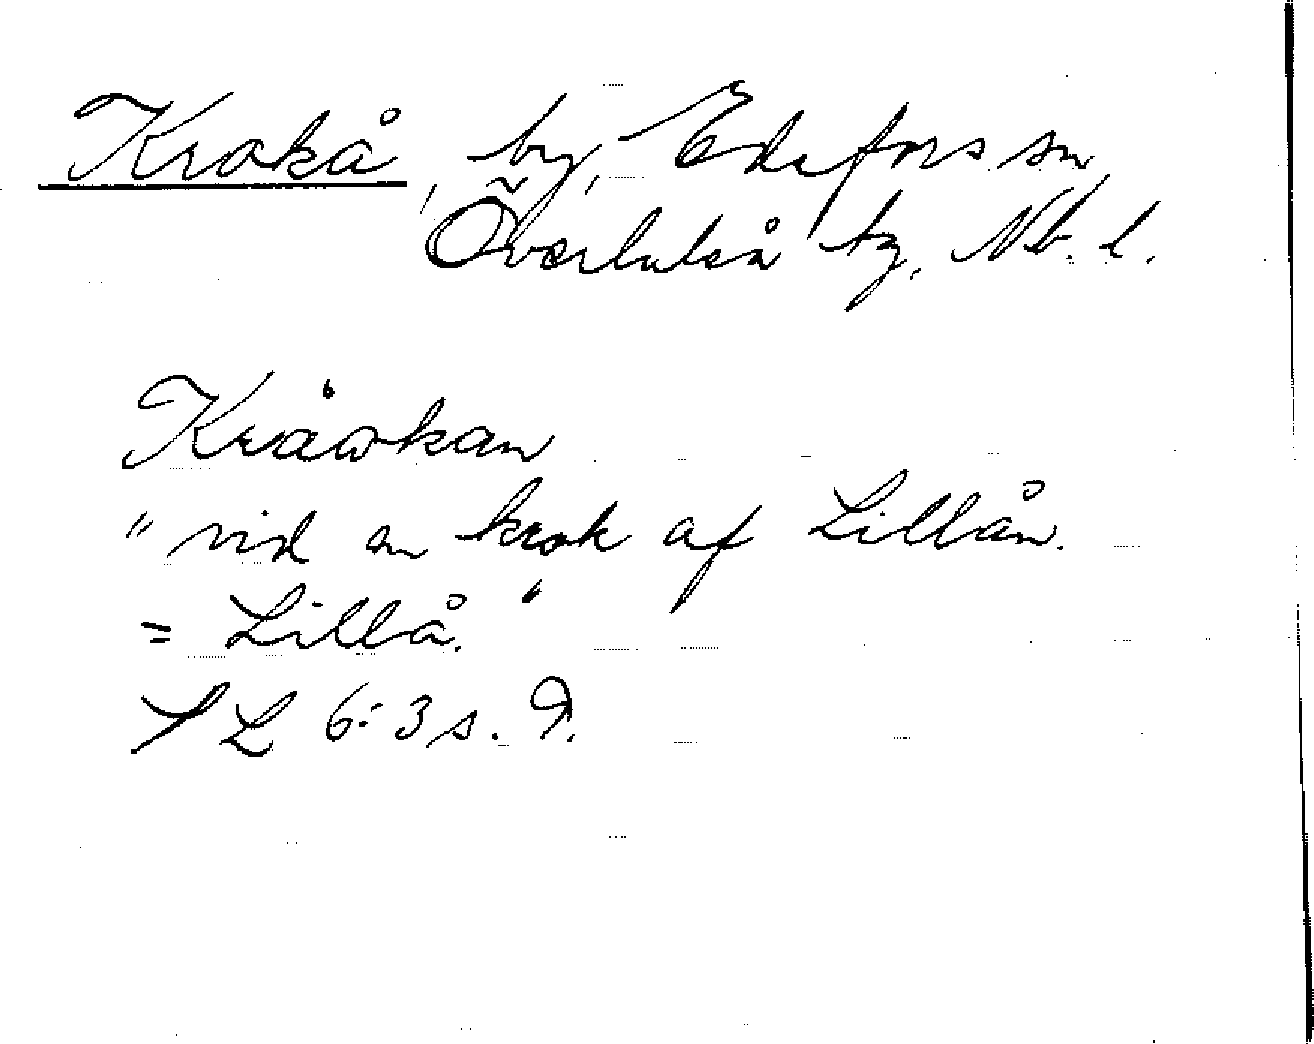 Krokå, by, Edefors sn,
Överluleå tg, Nb. l.
Kråωkan
"vid en krok af Lillån.
= Lillå."
SL 6:3 s. 9.